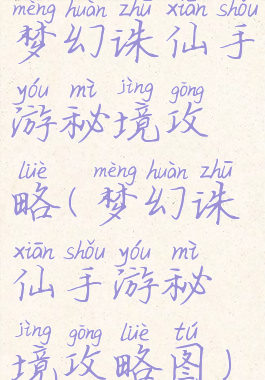 mèng huàn zhū xiān shǒu
梦幻诛仙手
yóu mì jìng gōng
游秘境攻
lüè mèng huàn zhū
略(梦幻诛
xiān shǒu yóu mì
仙手游秘
jìng gōng lüè tú
境攻略图)